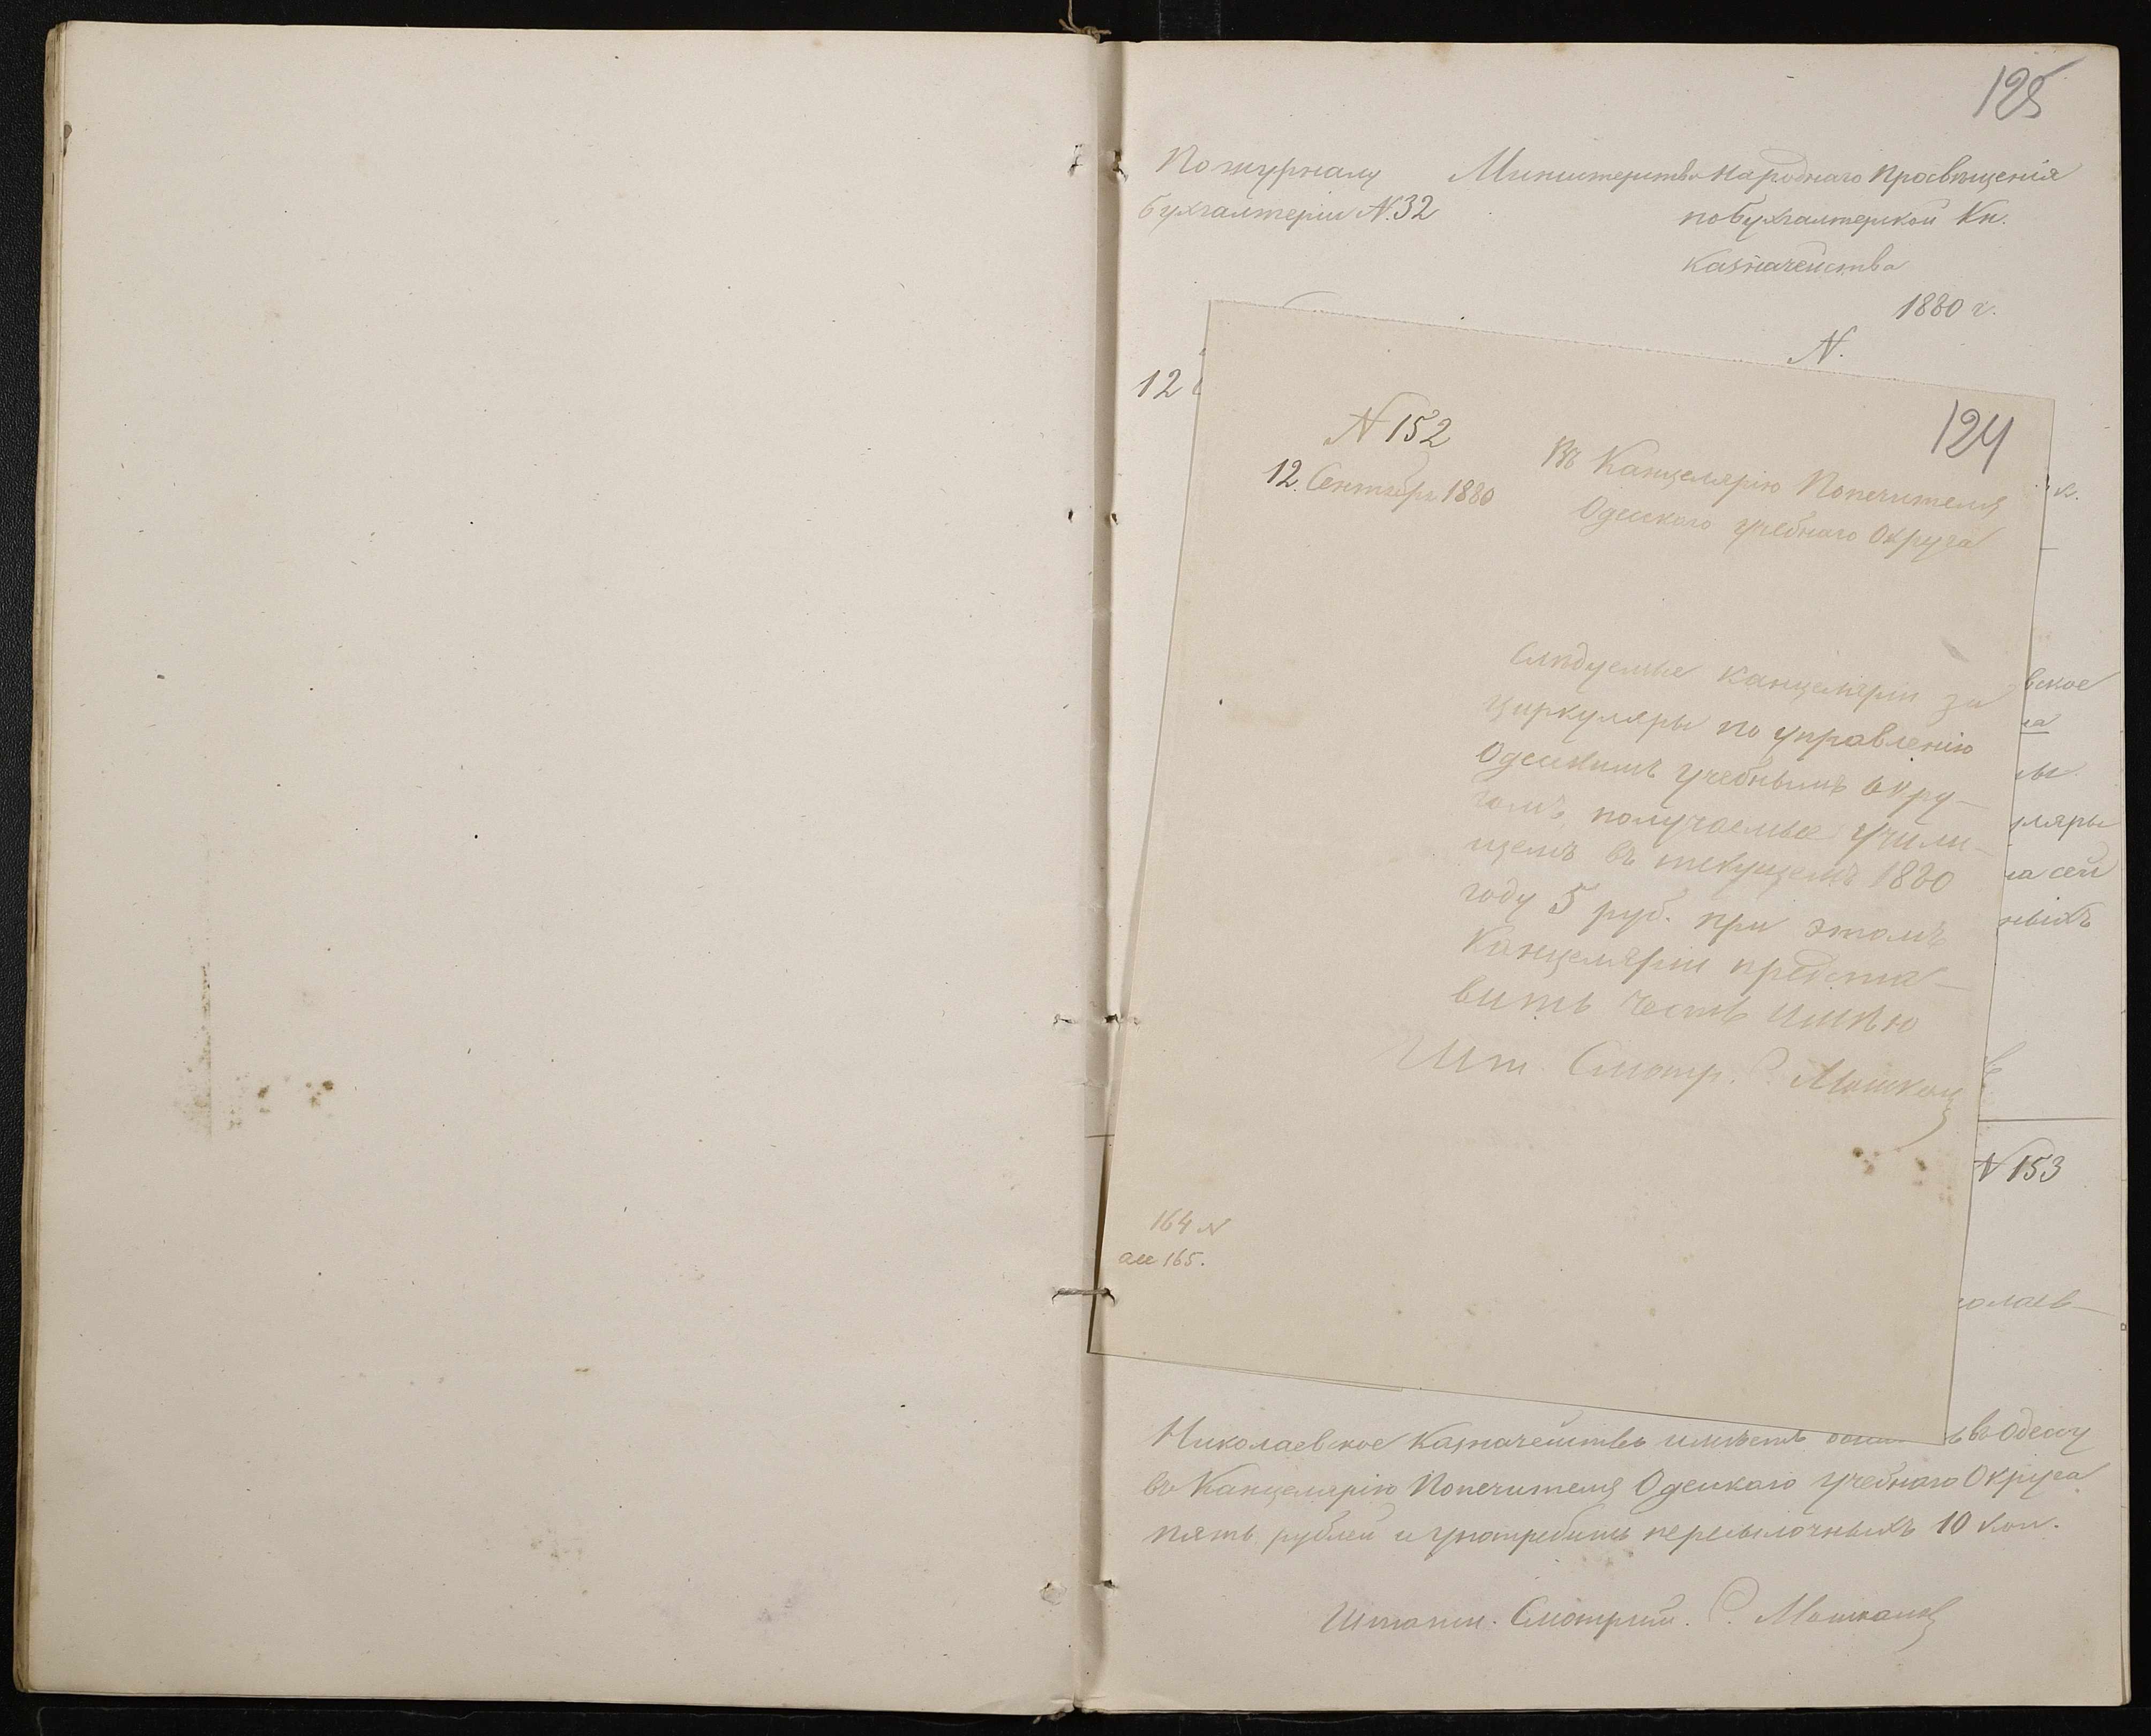 125
По журналу
бухгалтеріи N. 32
Министерства Народнаго Просвѣщенія
по Бухгалтерской Кн.
Казначейства
1880 г.
N.
12
124
N 152
12 Сентября 1880
Въ Канцелярію Попечителя
Одесскаго учебнаго Округа
к.
Слѣдуемые канцеляріи за
циркуляры по управленію
Одесскимъ учебнымъ окру-
гомъ, получаемые учили-
щемъ въ текущемъ 1880
году 5 руб. при этомъ
Канцеляріи предста-
вить честь имѣю
Шт. Смотр. С. Машкан
вское
ла
лы
уляры
на сей
ныхъ
N 153
164 N
165.
олаев-
Николаевское Казначейство имѣетъ въ Одессу
въ Канцелярію Попечителя Одесскаго учебнаго Округа
пять рублей и употребить пересылочныхъ 10 коп.
Штатн. Смотрит. С.